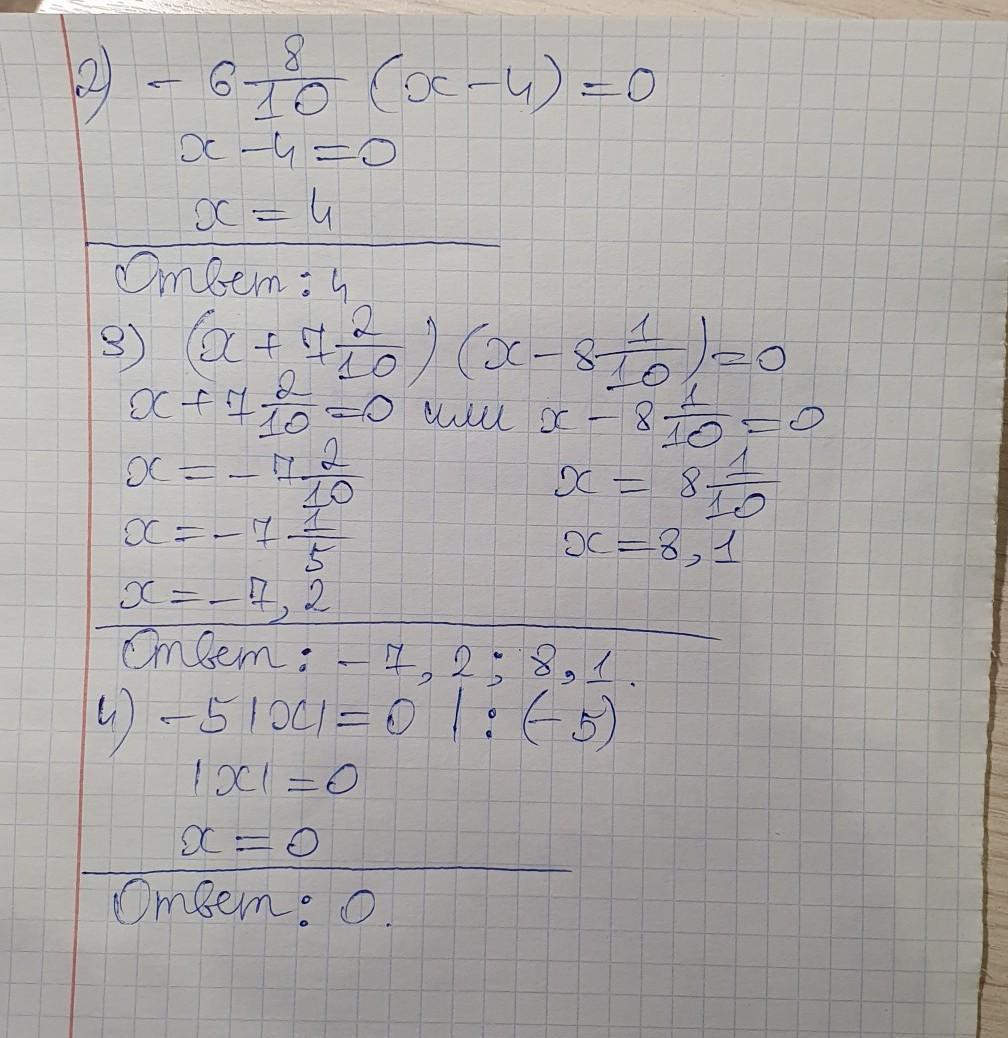 2) - 6 8/10 (x - 4) = 0
x - 4 = 0
x = 4
Ответ: 4
3) (x + 7 2/10) (x - 8 1/10) = 0
x + 7 2/10 = 0 или x - 8 1/10 = 0
x = - 7 2/10 x = 8 1/10
x = - 7 1/5 x = 8,1
x = - 7,2
Ответ: - 7,2; 8,1.
4) - 5|x| = 0 | : (- 5)
|x| = 0
x = 0
Ответ: 0.